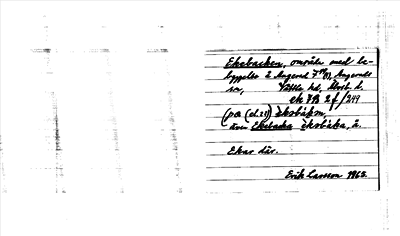 Ekebacken, område med be-
byggelse å Angered 7, Angereds
sn, Vättle hd, Älvsb. l.
ek 7B 2f /249
(på èksbákan,
även Ekebacka èksbáka, å.
Ekar där.
Erik Larsson 1965.